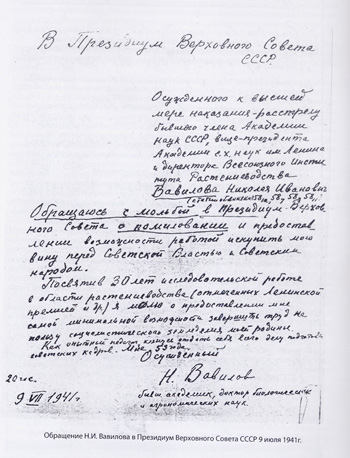 В Президиум Верховного Совета
СССР.
Осужденного к высшей
мере наказания - расстрелу
бывшего члена Академии
наук СССР, вице-президента
Академии с.х. наук им. Ленина
и директора Всесоюзного Инсти
тута Растениеводства
Вавилова Николая Ивановича
Обращаюсь с мольбой в Президиум Верхов-
ного Совета о помиловании и предостав
лении возможности работой искупить мою
вину перед Советской Властью и Советским
народом.
Посвятив 30 лет исследовательской работе
в области растениеводства (отмеченных Ленинской
премией и др.) я молю о предоставлении мне
самой минимальной возможности завершить труд на
пользу социалистического земледелия моей родины.
Как опытный педагог клянусь отдать себя всего делу подготовки
советских кадров. Мне 53 года.
Осужденный
20 час.
Н. Вавилов
9 VII 1941 г.
бывш. академик, доктор биологических
и агрономических наук.
Обращение Н.И. Вавилова в Президиум Верховного Совета СССР 9 июля 1941г.